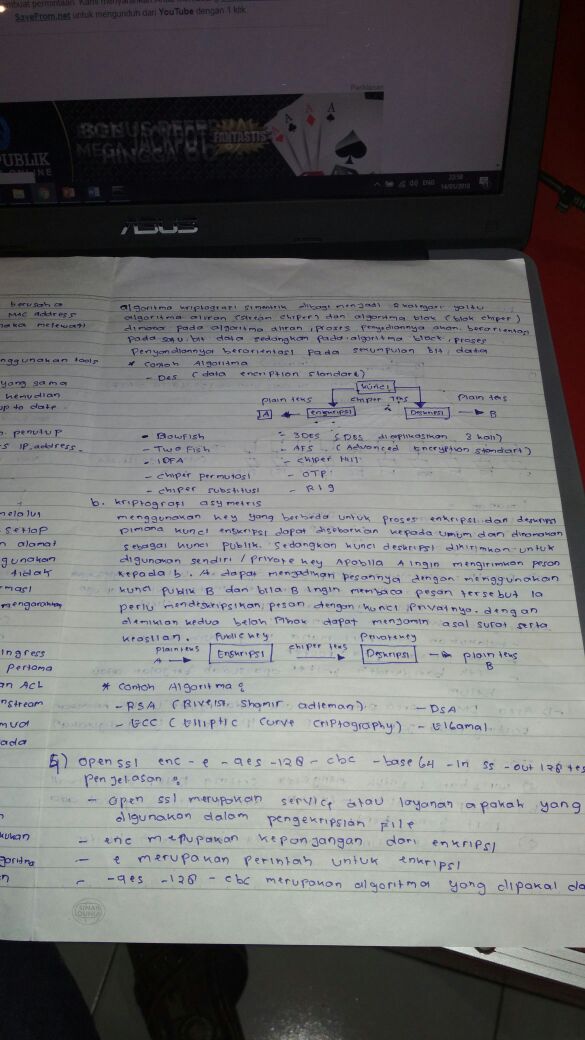 buat permintaan. Kami menyarankan
SaveFrom.net untuk mengunduh dari YouTube dengan 1 klik.
BONUS
MEGA JACKPOT
FANTASTIS
PUBLIK
ONLINE
ENG
23:58
14/01/2018
ASUS
berusaha
MAC address
maka melewati
nggunakan tools
yang sama
kemudian
up to date
penutup
IP address
melalui
setiap
alamat
gunakan
tidak
rmasi
mengarahkan
ingress
pertama
an ACL
nstream
ada
kukan
goritma
algoritma kriptografi simetrik dibagi menjadi 2 kategori yaitu
algoritma aliran (stream chiper) dan algoritma blok (blok chiper)
dimana pada algoritma aliran, proses penyandiannya akan berorientasi
pada satu bit data sedangkan pada algoritma block, proses
Penyandiannya berorientasi pada sekumpulan bit data
* Contoh Algoritma
- Des (data encription standart)
kunci
plain teks chiper teks plain teks
A Enskripsi Deskripsi B
• Blowfish - 3DES (DES diaplikasikan 3 kali)
- Two Fish - AES (Advanced Encryption standart)
- IDEA - chiper Hill
- chiper permutasi - OTP
- chiper substitusi
b. kriptografi asymetris
menggunakan key yang berbeda untuk proses enkripsi dan deskripsi
Dimana kunci enskripsi dapat disebarkan kepada umum dan dinamakan
sebagai kunci publik. Sedangkan kunci deskripsi dikirimkan untuk
digunakan sendiri / private key Apabila A ingin mengirimkan pesan
kepada b. A dapat mengirimkan pesannya dengan menggunakan
kunci publik B dan bila B ingin membaca pesan tersebut Ia
perlu mendeskripsikan pesan dengan kunci Privatnya. dengan
demikian kedua belah Pihak dapat menjamin asal surat serta
keaslian. Publickey Privatekey
plainteks chiper teks
A Enskripsi Deskripsi plain teks
B
* Contoh Algoritma :
- RSA (Rivest, Shamir adleman) - DSA
- ECC (Elliptic Curve criptography) - Elgamal.
5) openssl enc -e -aes -128 - cbc -base 64 -in ss -out 128 tes
penjelasan :
- Open ssl merupakan service atau layanan apakah yang
digunakan dalam pengenkripsian file
- enc merupakan kepanjangan dari enkripsi
- e merupakan perintah untuk enkripsi
- -aes -128 - cbc merupakan algoritma yang dipakai da
SINAR
DUNIA